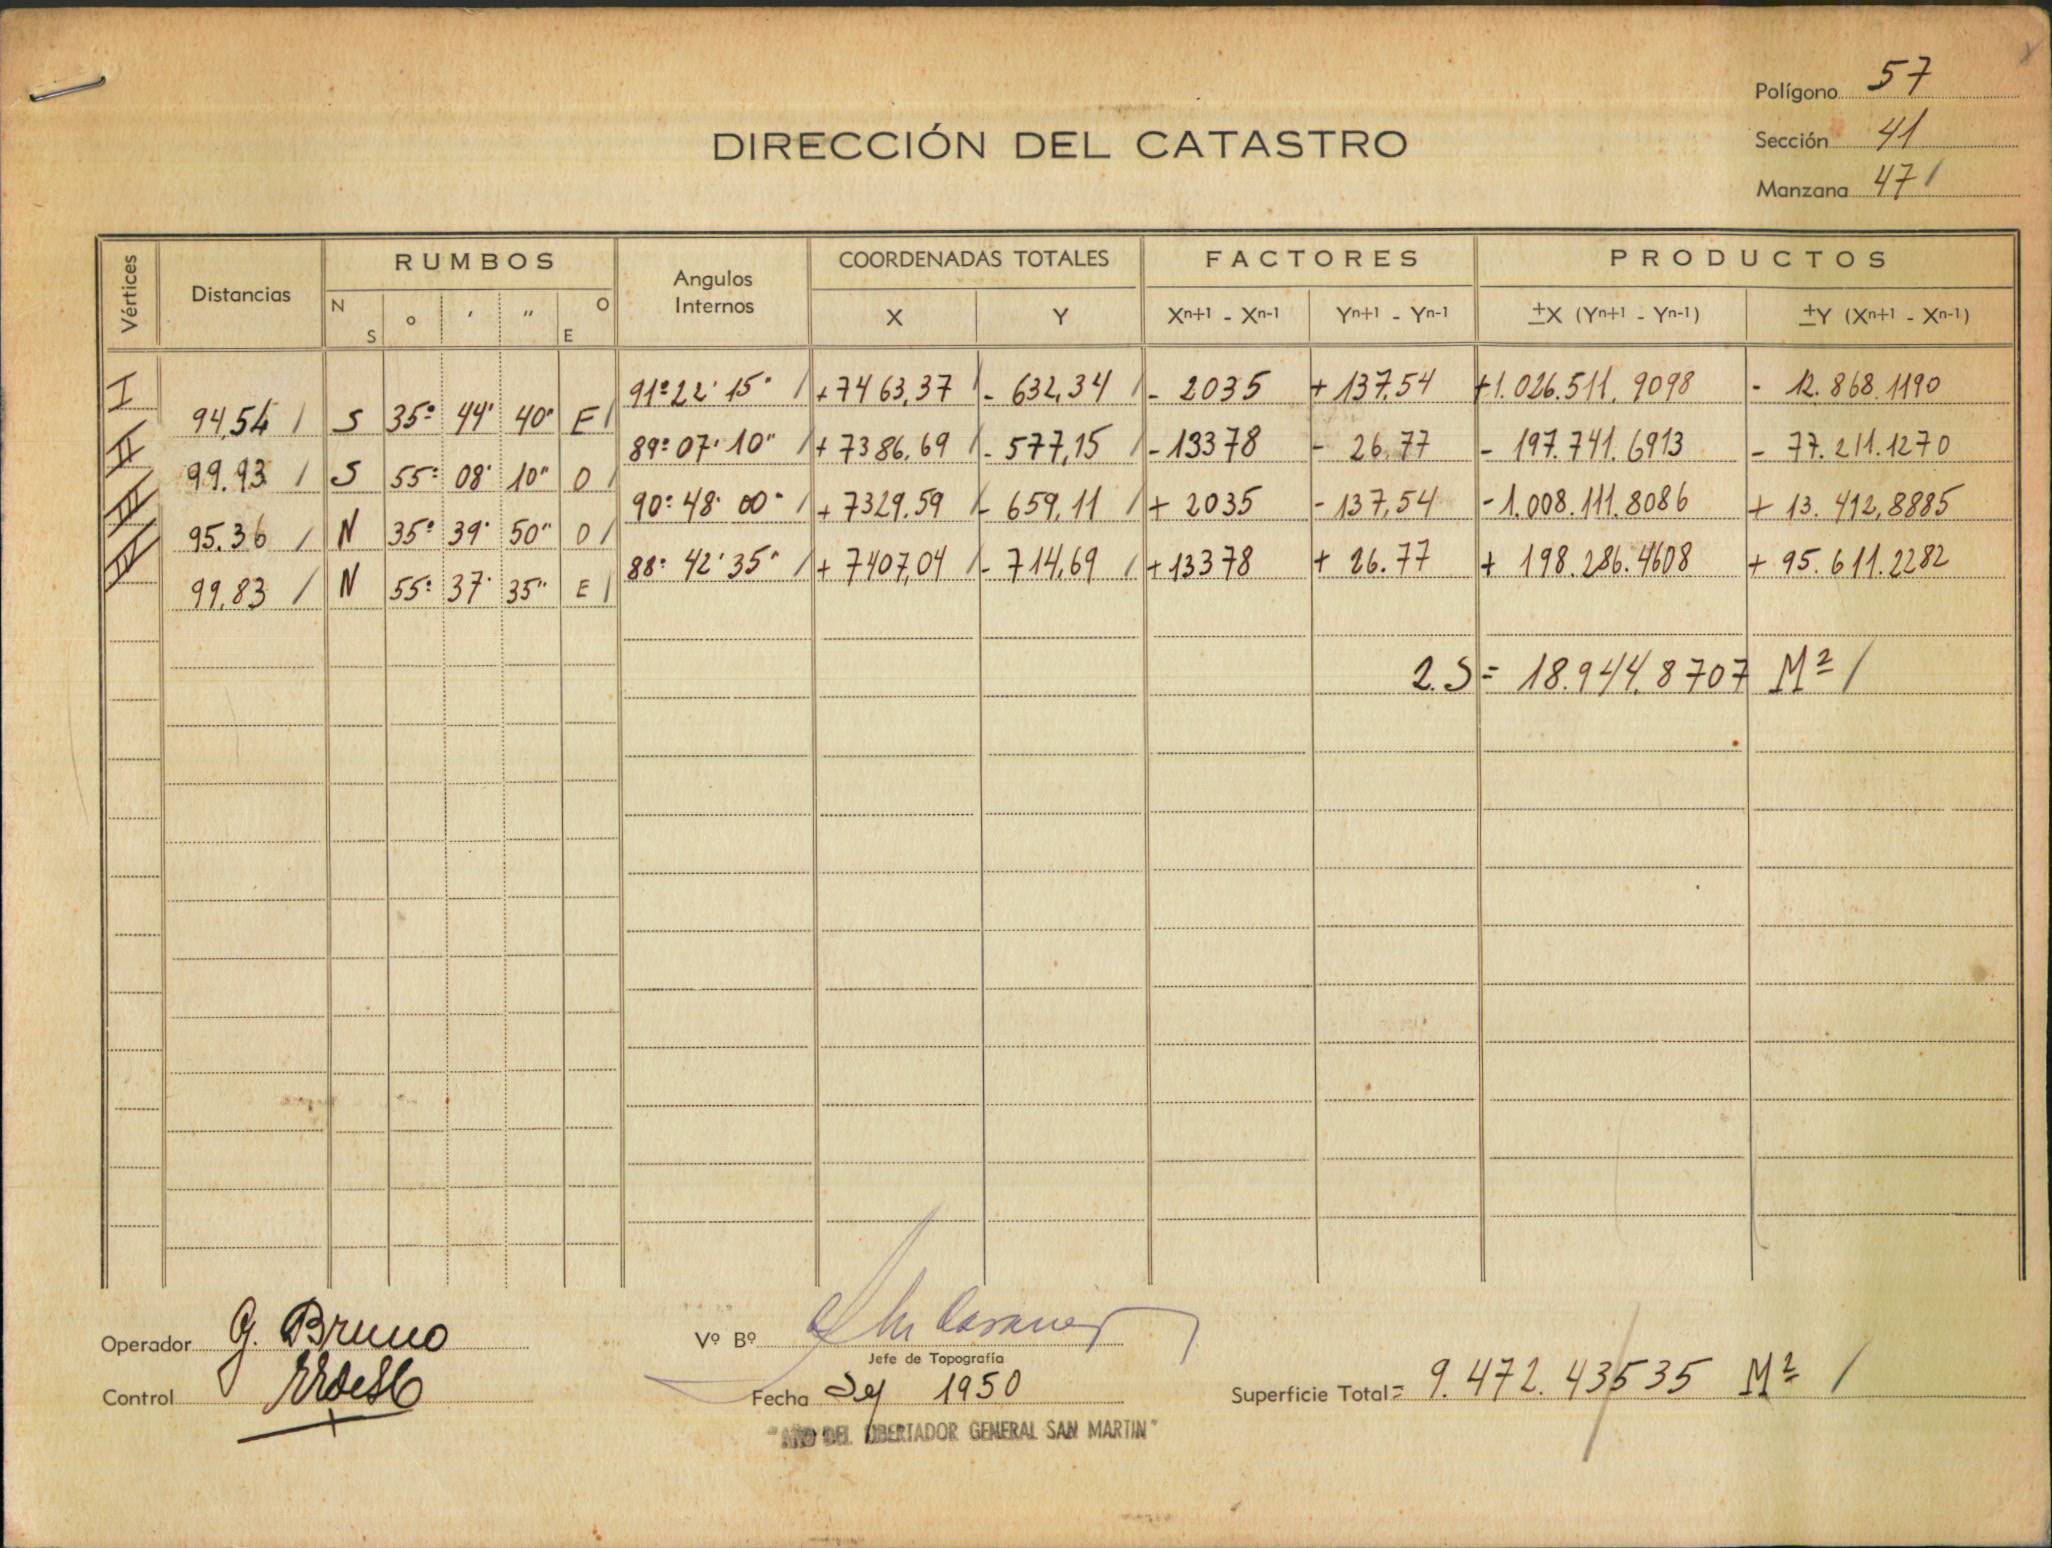 Polígono 57
Sección 41
Manzana 47
DIRECCIÓN DEL CATASTRO
Vértices Distancias RUMBOS Angulos Internos COORDENADAS TOTALES FACTORES PRODUCTOS
N S ° ' " O E X Y Xn+1 - Xn-1 Yn+1 - Yn-1 ±X (Yn+1 - Yn-1) ±Y (Xn+1 - Xn-1)
I 91º 22' 15" + 7463,37 - 632,34 - 2035 + 137,54 +1.026.511.9098 - 12.868.1190
94,54 S 35º 44' 40" E
II 89º 07' 10" + 7386,69 - 577,15 - 13378 - 26.77 - 197.741.6913 - 77.211.1270
99.93 S 55º 08' 10" O
III 90º 48' 00" + 7329.59 - 659,11 + 2035 - 137,54 - 1.008.111.8086 + 13.412,8885
95.36 N 35º 39' 50" O
IV 88º 42' 35" + 7407,04 - 714,69 + 13378 + 26.77 + 198.286.4608 + 95.611.2282
99,83 N 55º 37' 35" E
2.S = 18.944.8707 M²
Operador G. Bruno
Vº Bº
Jefe de Topografía
Control
Fecha 1950
Superficie Total = 9.472.43535 M²
"AÑO DEL LIBERTADOR GENERAL SAN MARTIN"